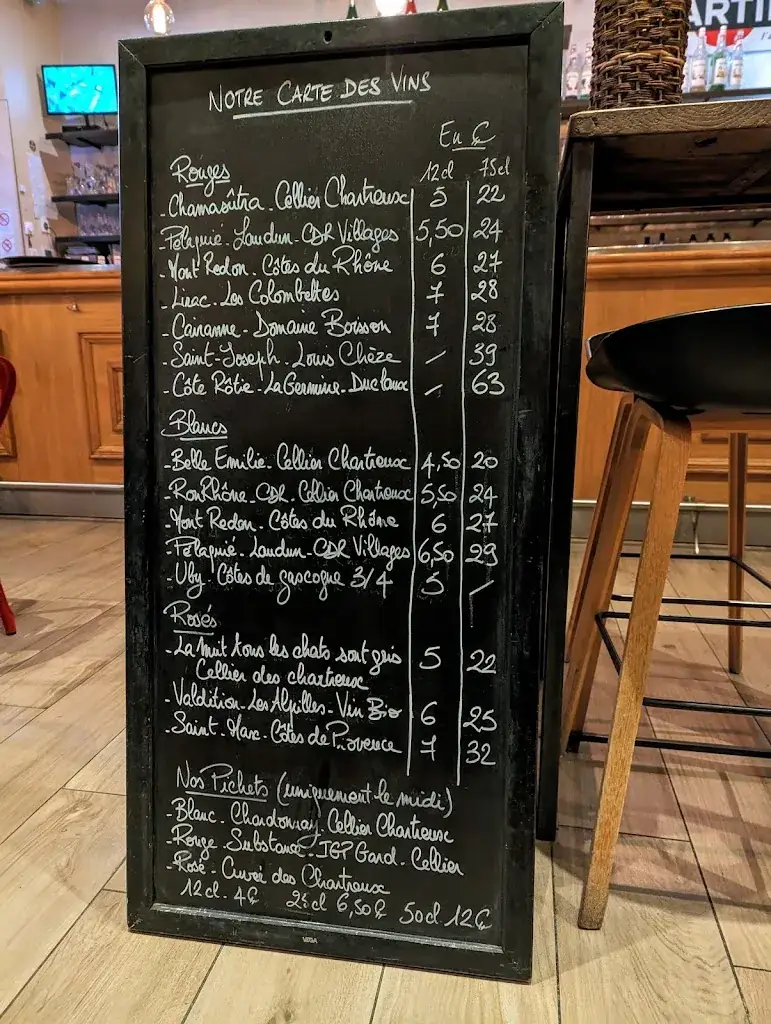 ARTI
NOTRE CARTE DES VINS
En €
Rouges 12cl 75cl
- Chamasûtra - Cellier Chartreux 5 22
- Pélaquié - Laudun - CDR Villages 5,50 24
- Mont Redon - Côtes du Rhône 6 27
- Lirac - Les Colombettes 7 28
- Cairanne - Domaine Boisson 7 28
- Saint-Joseph - Louis Chèze / 39
- Côte Rôtie - La Germine - Duclaux / 63
Blancs
- Belle Emilie - Cellier Chartreux 4,50 20
- RonRhône - CDR - Cellier Chartreux 5,50 24
- Mont Redon - Côtes du Rhône 6 27
- Pélaquié - Laudun - CDR Villages 6,50 29
- Uby - Côtes de gascogne 3/4 5 /
Rosés
- La nuit tous les chats sont gris 5 22
Cellier des chartreux
- Valdition - Les Alpilles - Vin Bio 6 25
- Saint-Marc - Côtes de Provence 7 32
Nos Pichets (uniquement le midi)
Blanc - Chardonnay - Cellier Chartreux
Rouge - Substance - IGP Gard - Cellier
Rosé - Cuvée des Chartreux
12cl - 4€ 25cl 6,50€ 50cl 12€